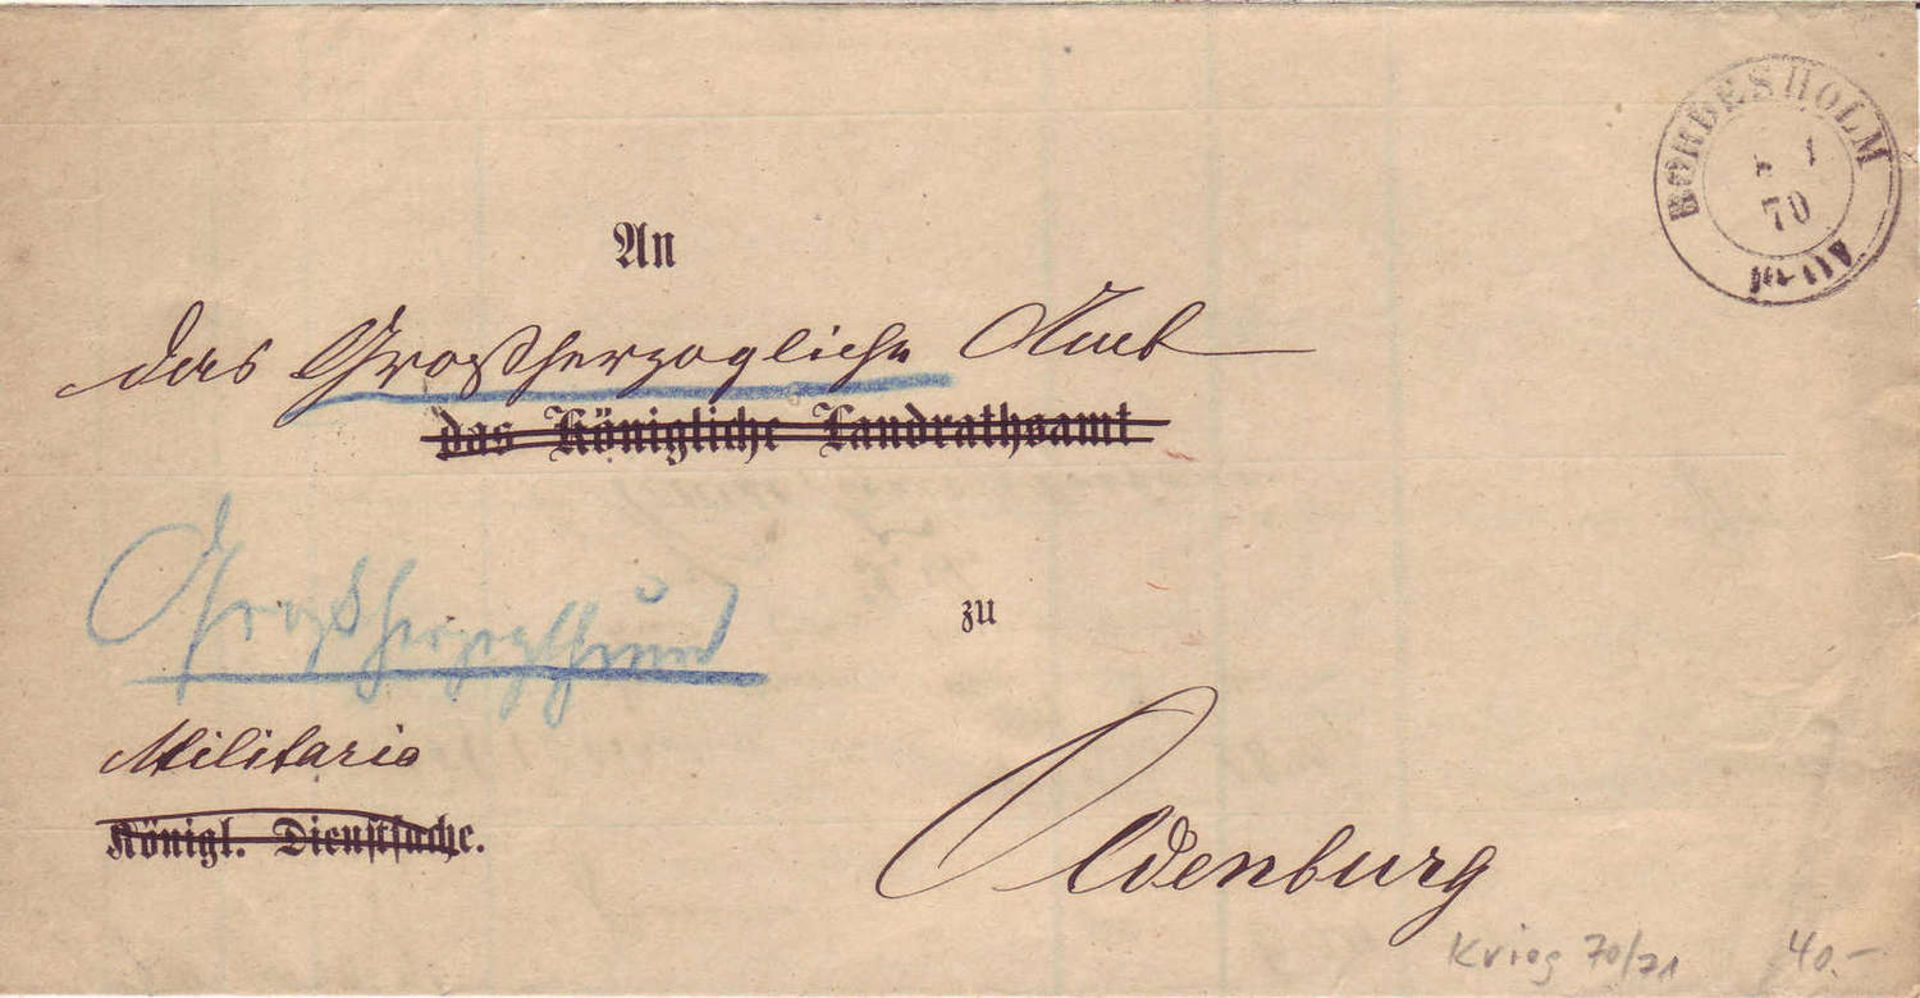 BORDESHOLM
70
An
das Großherzogliche Amt
das Königliche Landrathsamt
zu
Militaria
Königl. Dienstsache.
Oldenburg
Krieg 70/71
40.-